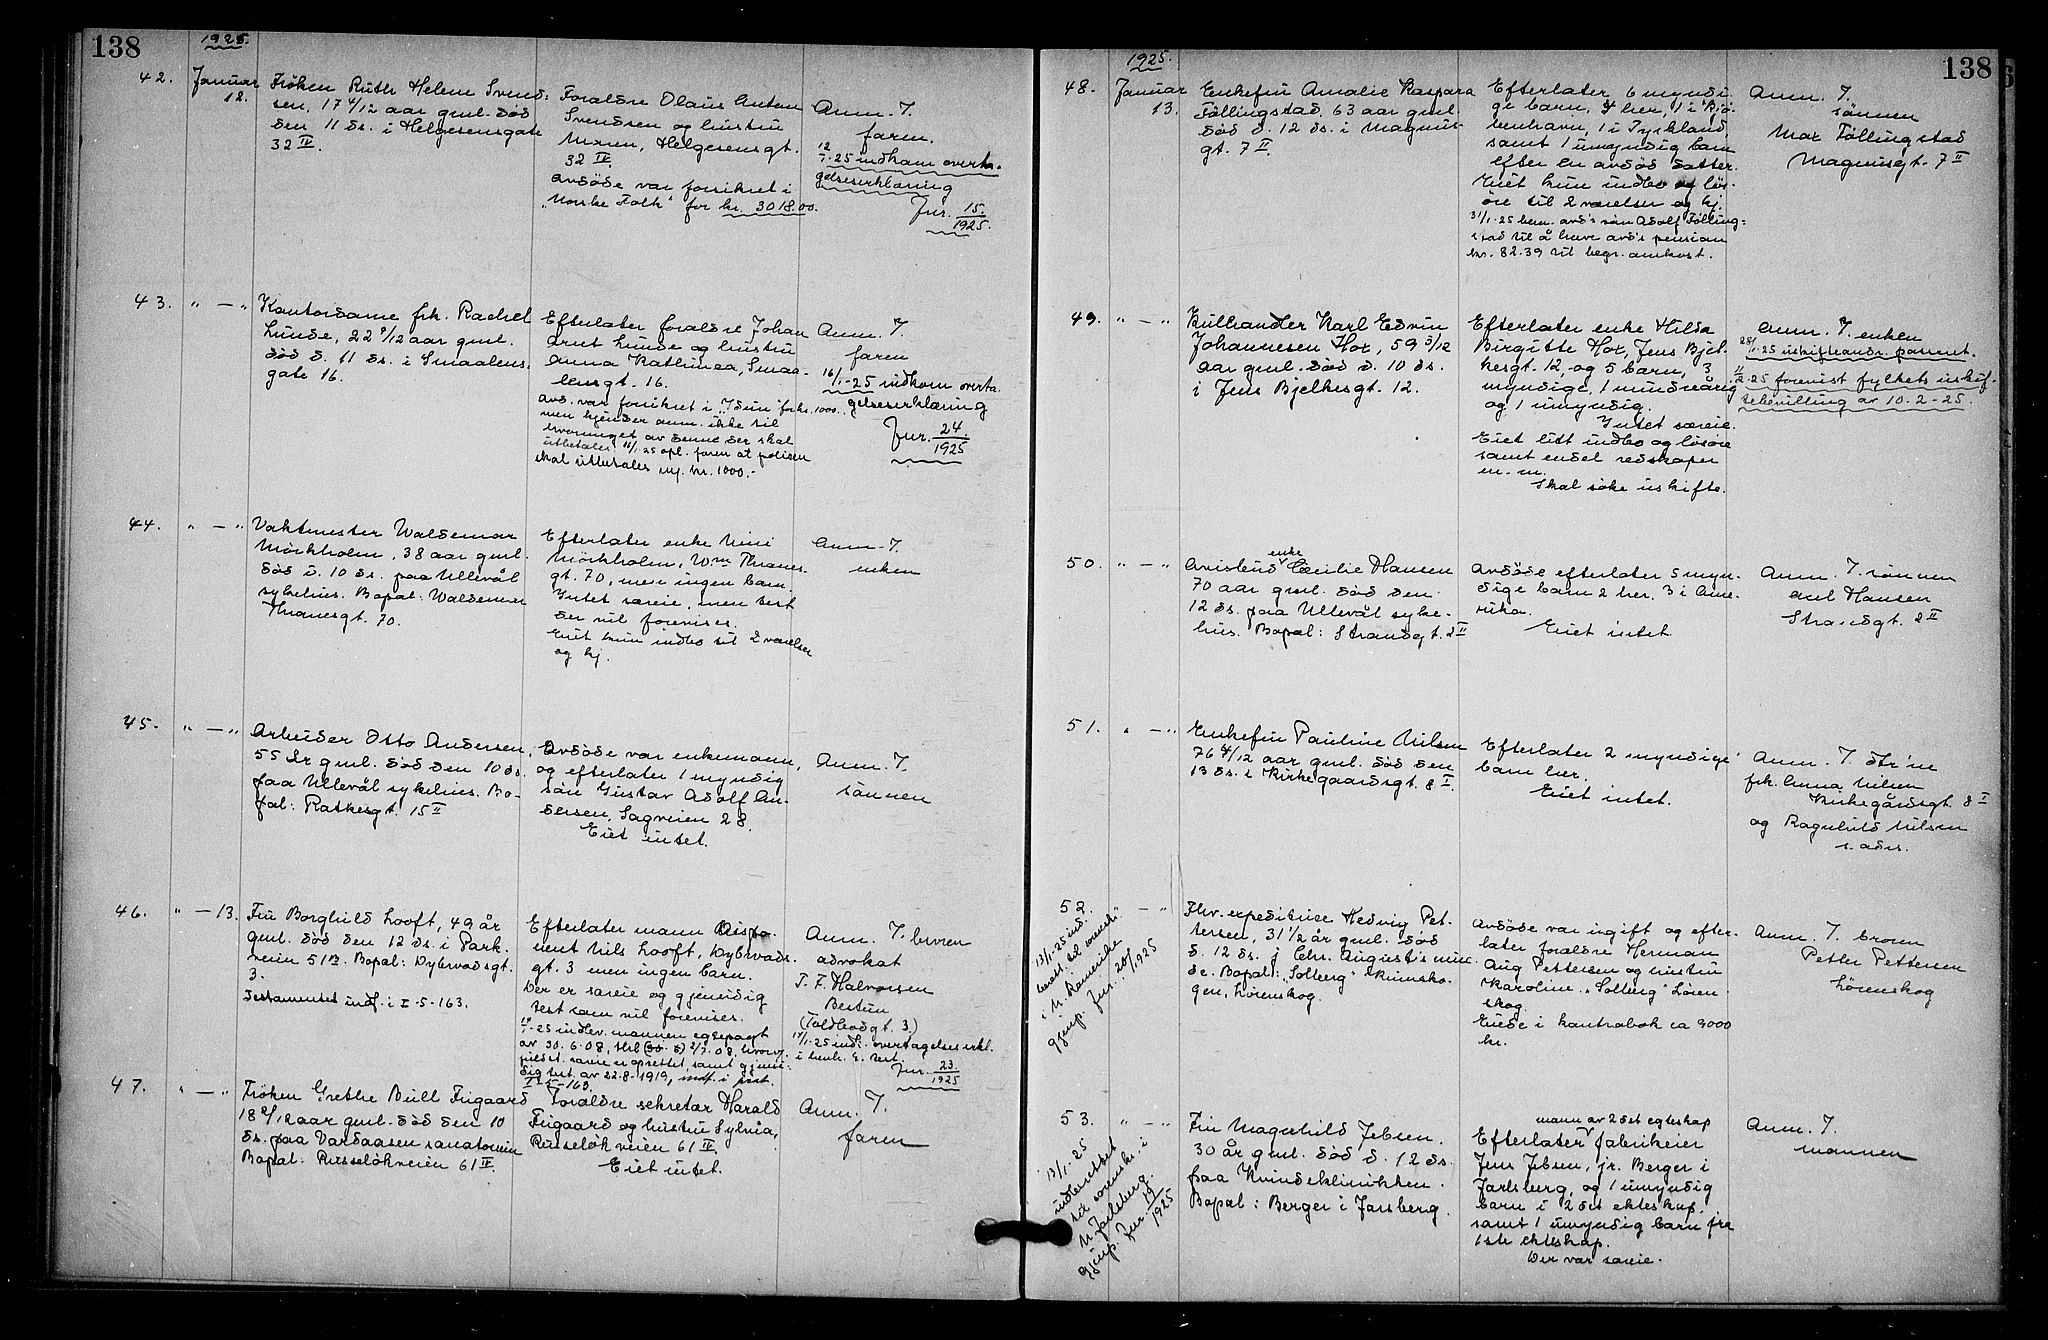 138
1925.
42.
Januar
12.
Frøken Ruth Helene Svend-
sen, 17 4/12 aar gml. død
den 11 ds. i Helgesensgate
32 IV.
Foraldre Olaus Anton
Svendsen og hustru
Maren, Helgesensgt.
32 IV.
Avdøde var forsikret i
"Norske Folk" for kr. 3018.00.
Anm. J.
faren.
12/1-25 indkom overta-
gelseserklæring
Jnr. 15/1925.
43. " — "
Kontordame frk. Rachel
Lunde, 22 9/12 aar gml.
død d. 11 ds. i Smaalens-
gate 16.
Efterlater foraldre Johan
Arnt Lunde og hustru
Anna Kathinca, Smaa-
lensgt. 16.
Avd. var forsikret i "Idun" for kr. 1000.-
men kjender anm. ikke til
hvormeget av denne der skal
utbetales. 16/1-25 opl. faren at polisen
skal utbetales m. kr. 1000.-
Anm. J.
faren
16/1-25 indkom overta-
gelseserklæring
Jnr. 24/1925
44. " — "
Vaktmester Waldemar
Mörkholm, 38 aar gml.
død d. 10 ds. paa Ullevål
sykehus. Bopæl: Waldemar
Thranesgt. 70.
Efterlater enke Nini
Mörkholm, Wm Thranes-
gt. 70, men ingen barn.
Intet særeie, men test
der vil forevises.
Eiet kun indbo til 2 værelser
og kj.
Anm. J.
enken
45. " — "
Arbeider Otto Andersen,
55 år gml. død den 10 ds.
paa Ullevål sykehus. Bo-
pæl: Ratkesgt. 15 II
Avdøde var enkemann,
og efterlater 1 myndig
søn Gustav Adolf An-
dersen, Sagveien 28.
Eiet intet.
Anm. J.
sønnen
46. " — 13.
Fru Borghild Looft, 49 år
gml. død den 12 ds. i Park-
veien 51 B. Bopæl: Dybwadsgt.
3.
Testamentet indf. i I-5-163.
Efterlater mann Dispo-
nent Nils Looft, Dybwads-
gt. 3 men ingen barn.
Der er særeie og gjensidig
test som vil forevises.
14/1-25 indlev. mannen egtepagt
av 30.6.08, thl. 2/7.08, hvorv.
særeie er oprettet, samt gjensi-
dig test. av 22.8.1919, indf. i prot.
II-5-163.
Anm. J. broren
advokat
T. F. Halvorsen
Bestun
(Toldbodgt. 3.)
14/1-25 indl. overtagelseserkl.
i henh. t. test.
Jnr. 23/1925
47. " — "
Frøken Grethe Bull Fugaard
18 2/12 aar gml. død den 10
ds. paa Vardaasen sanatorium
Bopæl: Russeløkveien 61 IV.
Foraldre sekretær Harald
Fugaard og hustru Sylvia,
Russeløkveien 61 IV.
Eiet intet.
Anm. J.
faren
138
1925.
48.
Januar
13.
Enkefru Amalie Kaspara
Föllingstad, 63 aar gml.
død d. 12 ds. i Magnus-
gt. 7 II.
Efterlater 6 myndi-
ge barn, 4 her, 1 i Kjø-
benhavn, 1 i Tyskland,
samt 1 umyndig barn
efter en avdød datter.
Eiet kun indbo og løs-
øre til 2 værelser og kj.
31/1-25 bem. avd's søn Adolf Følling-
stad til å heve avd's pension
kr. 82.39 til begr. omkost.
Anm. J.
sønnen
Max Föllingstad
Magnusgt. 7 II
49. " — "
Kulhandler Karl Edvin
Johannesen Hox, 59 3/12
aar gml. død d. 10 ds.
i Jens Bjelkesgt. 12.
Efterlater enke Hilda
Birgitte Hox, Jens Bjel-
kesgt. 12, og 5 barn, 3
myndige, 1 mindreårig
og 1 umyndig.
Intet særeie.
Eiet litt indbo og løsøre
samt endel redskaper
m. m.
Skal søke uskifte.
Anm. J. enken
28/1-25 uskifteandr. passeret.
11/2-25 forevist fylkets uskif-
tebevilling av 10-2-25.
50. " — "
Avisbud enke Cecilie Hansen
70 aar gml. død den
12 ds. paa Ullevål syke-
hus. Bopæl: Strandgt. 2 II
Avdøde efterlater 5 myn-
dige barn 2 her, 3 i Ame-
rika.
Eiet intet.
Anm. J. sønnen
Axel Hansen
Strandgt. 2 II
51. " — "
Enkefru Pauline Nilsen
76 4/12 aar gml. død den
13 ds. i Kirkegaardsgt. 8 I.
Efterlater 2 myndige
barn her.
Eiet intet.
Anm. J. dtr'ne
frk. Anna Nilsen
Kirkegårdsgt. 8 I
og Ragnhild Nilsen
s. adr.
52. — "
13/1-25 ind-
beret. til sorenskr.
i N. Romerike
gjenp. Jnr. 20/1925
Fhv. expeditrice Hedvig Pet-
tersen, 31 1/2 år gml. død
d. 12 ds. i Chr. August's min-
de. Bopæl: "Solberg" Skimsko-
gen, Lørenskog.
Avdøde var ugift og efter-
later foraldre Herman
Aug Pettersen og hustru
Karoline, "Solberg" Løren-
skog.
Eiede i kontrabok ca 9000
kr.
Anm. J. broren
Petter Pettersen
Lørenskog
53. " — "
13/1-25
indberettet
til sorenskr. i
N. Jarlsberg.
gjenp. Jnr. 19/1925
Fru Magnhild Jebsen.
30 år gml. død d. 12 ds.
paa Kvindeklinikken.
Bopæl: Berger i Jarsberg.
mann av 2det egteskap
Efterlater fabrikeier
Jens Jebsen, jr. Berger i
Jarlsberg, og 1 umyndig
barn i 2det ekteskap.
samt 1 umyndig barn fra
1ste ekteskap.
Der var særeie.
Anm. J.
mannen